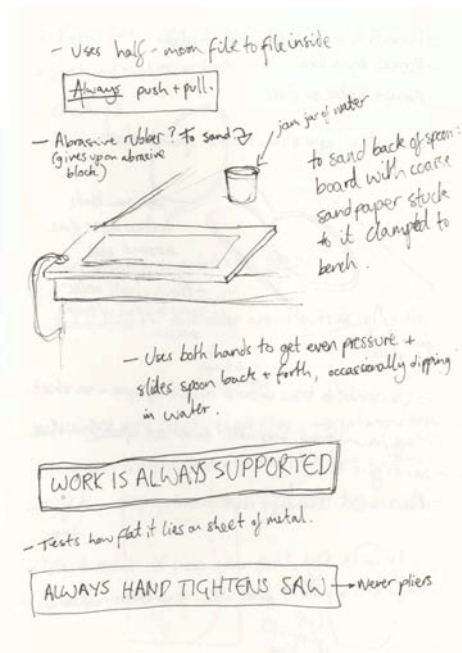 - Uses half-moon file to file inside
Always push + pull.
- Abrasive rubber? To sand
(gives up on abrasive
block.)
jam jar of water
to sand back of spoon:
board with coarse
sandpaper stuck
to it clamped to
bench.
- Uses both hands to get even pressure +
slides spoon back + forth, occasionally dipping
in water.
WORK IS ALWAYS SUPPORTED
- Tests how flat it lies on sheet of metal.
ALWAYS HAND TIGHTENS SAW → never pliers